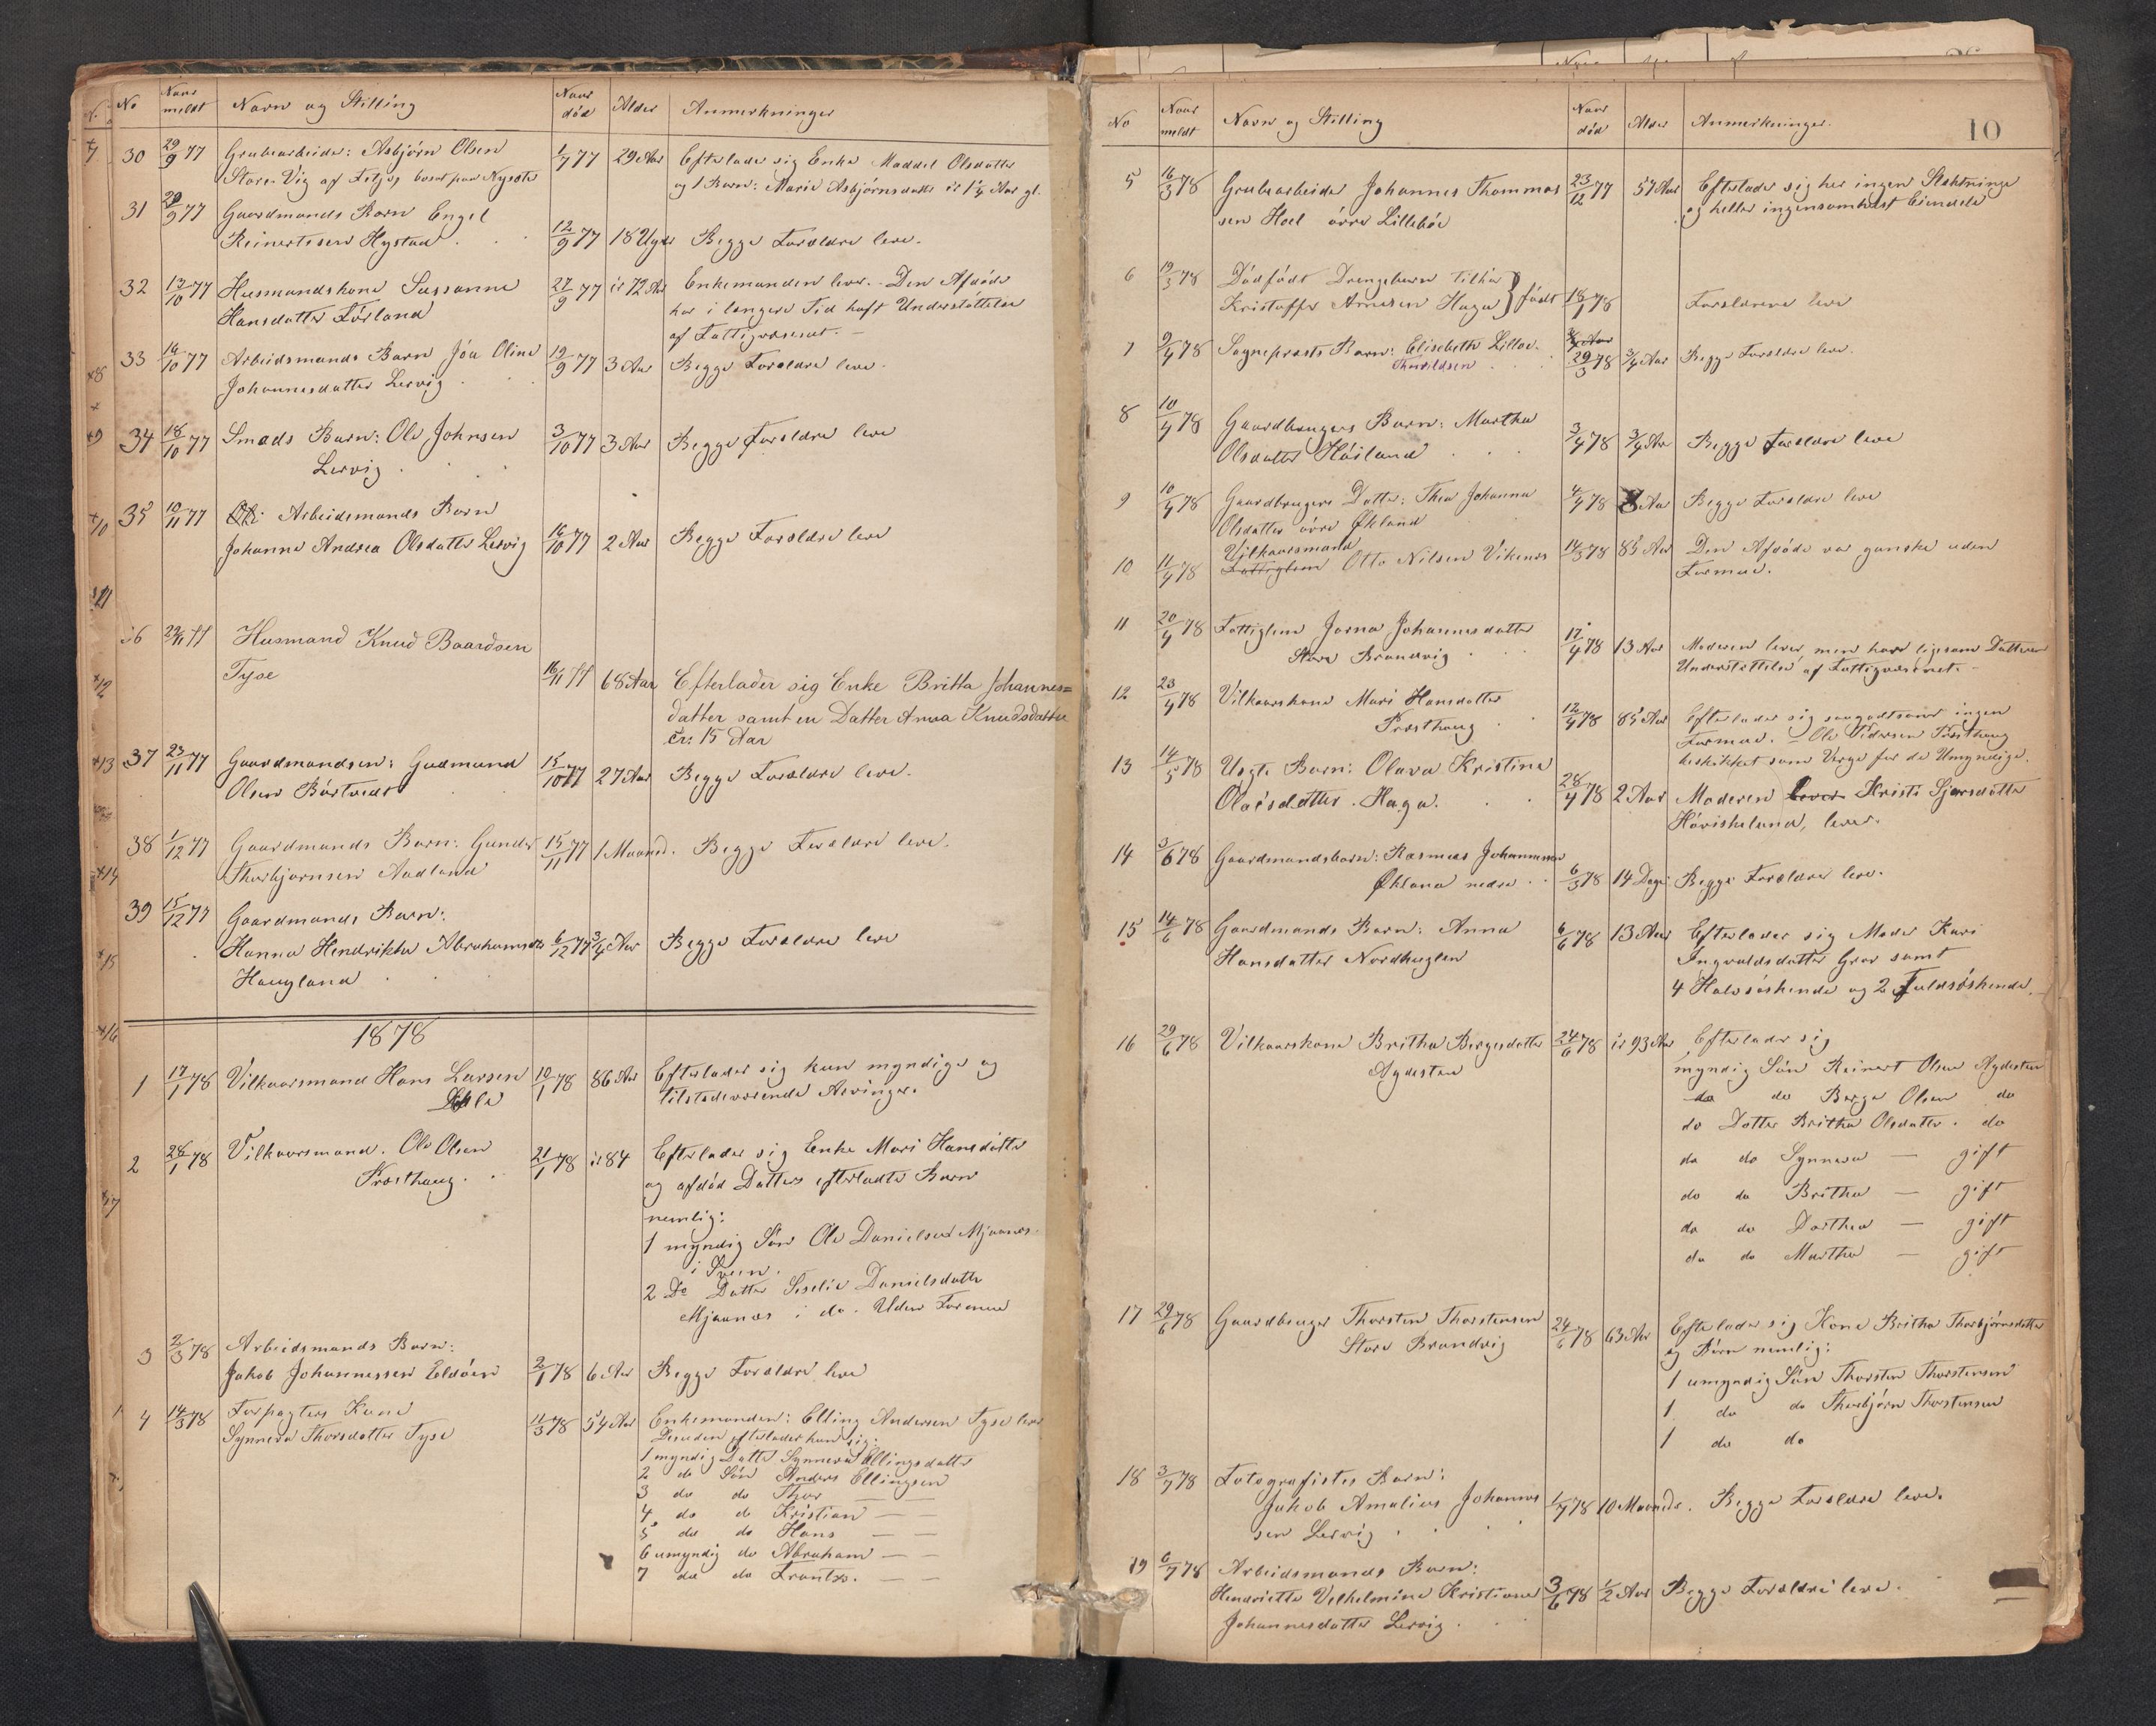 No Naar meldt Navn og Stilling Naar död Alder Anmerkninger
30 29/9 77 Grubearbeider: Asbjörn Olsen 1/7 77 29 Aar Efterlader sig Enke Maddel Olsdatter
Store Vig af bosat paa Nysæter og 1 Barn: Marie Asbjörnsdatter er 1 1/4 Aar gl.
31 29/9 77 Gaardmands Barn Engel
Reinertsen Hystad 12/9 77 18 Uger Begge Forældre leve.
32 13/10 77 Husmandskone Sussanne 27/9 77 er 72 Aar Enkemanden lever. Den Afdöde
Hansdatter Förland har i længere Tid haft Understöttelse
af Fattigvæsenet. —
33 14/10 77 Arbeidsmands Barn Jóa Oline 19/9 77 3 Aar Begge Forældre leve.
Johannesdatter Lervig
34 18/10 77 Smeds Barn: Ole Johnsen 3/10 77 3 Aar Begge Forældre leve
Lervig
35 10/11 77 Arbeidsmands Barn
Johanne Andrea Olsdatter Lervig 16/10 77 2 Aar Begge Forældre leve
36 22/11 77 Husmand Knud Baardsen
Tyse 16/11 77 68 Aar Efterlader sig Enke Britta Johannes=
datter samt en Datter Anna Knudsdatter
er: 15 Aar
37 23/11 77 Gaardmandsen: Gudmund 15/10 77 27 Aar Begge Forældre leve.
Olsen Börtvedt
38 1/12 77 Gaardmands Barn: Gunder 15/11 77 1 Maaned. Begge Forældre leve.
Thorbjørnsen Aadland
39 15/12 77 Gaardmands Barn:
Hanna Hendrikke Abrahamsdtr 6/12 77 3/4 Aar Begge Forældre leve
Haugland
1878
1 17/1 78 Vilkaarsmand Hans Larsen 10/1 78 86 Aar Efterlader sig kun myndige og
tilstedeværende Arvinger.
2 28/1 78 Vilkaarsmand. Ole Olsen 21/1 78 er 84 Efterlader sig Enke Mari Hansdatter
Præsthaug. og afdöd Datters efterladte Barn
nemlig:
1 myndig Sön Ole Danielsen Mjaanes
i Sveen.
2 Do Datter Seselie Danielsdatter
Mjaanes i do. Uden Formue
3 2/3 78 Arbeidsmands Barn:
Jakob Johannessen Eldöen 2/1 78 6 Aar Begge Forældre leve
4 14/3 78 Forpagters Kone 11/3 78 54 Aar Enkemanden: Elling Andersen Tyse lever
Synneva Thorsdatter Tyse Desuden efterlader hun sig:
1 myndig Datter Synneva Ellingsdatter
2 do Sön Anders Ellingsen
3 do do Thor — —
4 do do Kristian — —
5 do do Hans — —
6 umyndig do Abraham — —
7 do do Frantz. — —
10
No Naar meldt Navn og Stilling Naar död Alder Anmerkninger.
5 16/3 78 Grubearbeider Johannes Thommas 23/12 77 57 Aar Efterlader sig her ingen Slektninge
sen Hoel övre Lilleböe og heller ingensomhelst Eiendele
6 19/3 78 Dödfödt Drengebarn tilhör
Kristoffer Arnesen Haga } födt 18/1 78 Forældrene leve
7 9/4 78 Sognepræsts Barn: Elisabeth Lilloe- 29/3 78 3/4 Aar Begge Forældre leve.
Thorildsen
8 10/4 78 Gaardbrugers Barn: Martha
Olsdatter Höiland 3/4 78 3/4 Aar Begge Forældre leve
9 10/4 78 Gaardbrugers Datter: Thea Johanna 4/4 78 8 Aar Begge Forældre leve
Olsdatter övre Økland
Vilkaarsmand
10 11/4 78 Fattiglem Otto Nilsen Vikenes 14/3 78 85 Aar Den Afdöde var ganske uden
Formue.
11 20/4 78 Fattiglem Jorna Johannesdatter 17/4 78 13 Aar Moderen lever, men har ligesom Datteren
Store Brandvig Understöttelse af Fattigvæsenet. —
12 23/4 78 Vilkaarskone Mari Hansdatter
Præsthaug 12/4 78 85 Aar Efterlader sig saagodtsom ingen
Formue. — Ole Vidersen Præsthaug
beskikket som Verge for de Umyndige.
13 14/5 78 Uegte Barn: Olava Kristine
Olaisdatter. Haga. 28/4 78 2 Aar Moderen lever Kristi Sjursdatter
Hoviskeland, lever.
14 3/6 78 Gaardmandsbarn: Rasmus Johannessen
Økland nedre 6/3 78 14 Dage Begge Forældre leve.
15 14/6 78 Gaardmands Barn: Anna 6/6 78 13 Aar Efterlader sig Moder Kari
Hansdatter Nordhuglen Ingvaldsdatter Grov samt
4 Halvsöskende og 2 Fuldsöskende.
16 29/6 78 Vilkaarskone Britha Bergesdatter 24/6 78 er 93 Aar Efterlader sig
Agdesten myndig Sön Reinert Olsen Agdesten
do do Berge Olsen do
do Datter Britha Olsdatter. do
do do Synneva — gift
do do Britha — gift
do do Dorthea — gift
do do Martha — gift
17 29/6 78 Gaardbruger Thorsten Thorstensen 24/6 78 63 Aar Efterlader sig Kone Britha Thorbjörnsdatter
Store Brandvig og Börn nemlig:
1 umyndig Sön Thorsten Thorstensen
1 do do Thorbjörn Thorstensen
1 do do
18 3/7 78 Fotografistes Barn:
Jakob Amalius Johannes 1/7 78 10 Maaneder. Begge Forældre leve.
sen Lervig
19 6/7 78 Arbeidsmands Barn:
Henriette Vilhelmine Kristiane 3/6 78 1/2 Aar Begge Forældre leve.
Johannesdatter Lervig